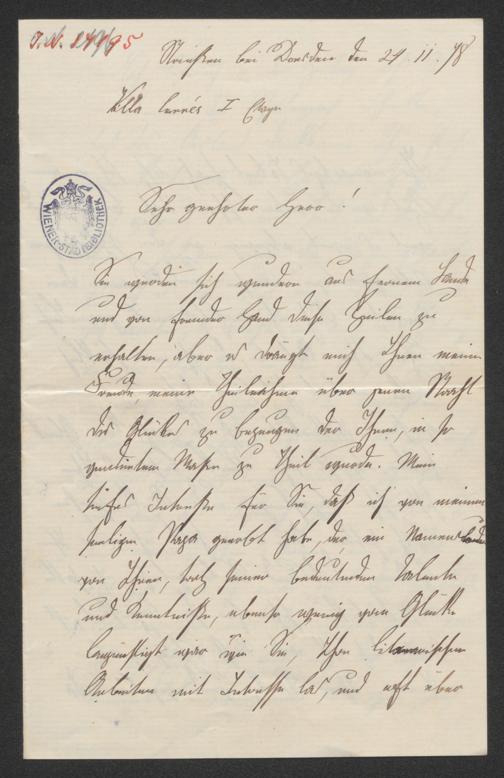 J.N. 24495
bei Dresden den 24 11. 78
Villa I Etage
WIENER STADTBIBLIOTHEK
Sehr geehrter Herr!
Sie werden sich wundern aus fernem Lande
und von fremder Hand diese Zeilen zu
erhalten, aber es drängt mich Ihnen meine
Freude, meine Theilnahme über jenen Strahl
des Glückes zu bezeugen der Ihnen, in so
Maße zu Theil wurde. Mein
tiefes Interesse für Sie, daß ich von meinem
seeligen Papa geerbt habe, der ein Namens
von Ihnen, trotz seiner bedeutenden Talente
und Kenntniße, ebenso wenig vom Glücke
begünstigt war wie Sie, Ihre literarischen
Arbeiten mit Interesse las, und oft über